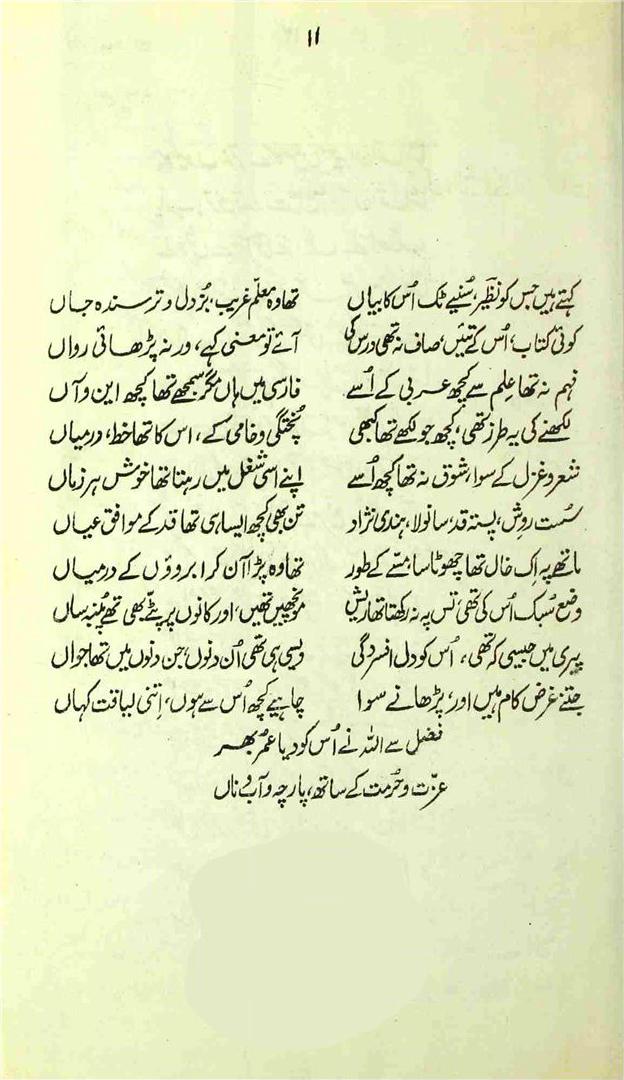 ۱۱
کہتے ہیں جس کو نظیرؔ، سُنیے ٹک اُس کا بیاں تھا وہ معلّم غریب، بُزدل و ترسندہ جاں
کوئی کتاب، اُس کے تئیں، صاف نہ تھی درس کی آئے تو معنی کہے، ورنہ پڑھائی رواں
فہم نہ تھا عِلم سے کچھ عربی کے اُسے فارسی میں ہاں مگر سمجھے تھا کچھ این و آں
لکھنے کی یہ طرز تھی، کچھ جو لکھے تھا کبھی پُختگی و خامی کے، اس کا تھا خط، درمیاں
شعر و غزل کے سوا، شوق نہ تھا کچھ اُسے اپنے اسی شغل میں رہتا تھا خوش ہر زماں
سُست روِش، پستہ قد، سانولا، ہندی نژاد تن بھی کچھ ایسا ہی تھا قد کے موافق عیاں
ماتھے پہ اِک خال تھا چھوٹا سا مسّے کے طور تھا وہ پڑا آن کر ابروؤں کے درمیاں
وضع سُبک اُس کی تھی، تس پہ نہ رکھتا تھا ریش مونچھیں تھیں، اور کانوں پر پٹّے بھی تھے پُنبہ ساں
پیری میں جیسی کہ تھی، اُس کو دل افسردگی ویسی ہی تھی اُن دنوں، جن دنوں میں تھا جواں
جتنے غرض کام ہیں اور، پڑھانے سوا چاہیے کچھ اُس سے ہوں، اِتنی لیاقت کہاں
فضل سے اللہ نے اُس کو دیا عمر بھر
عزّت و حُرمت کے ساتھ، پارچہ و آب و ناں